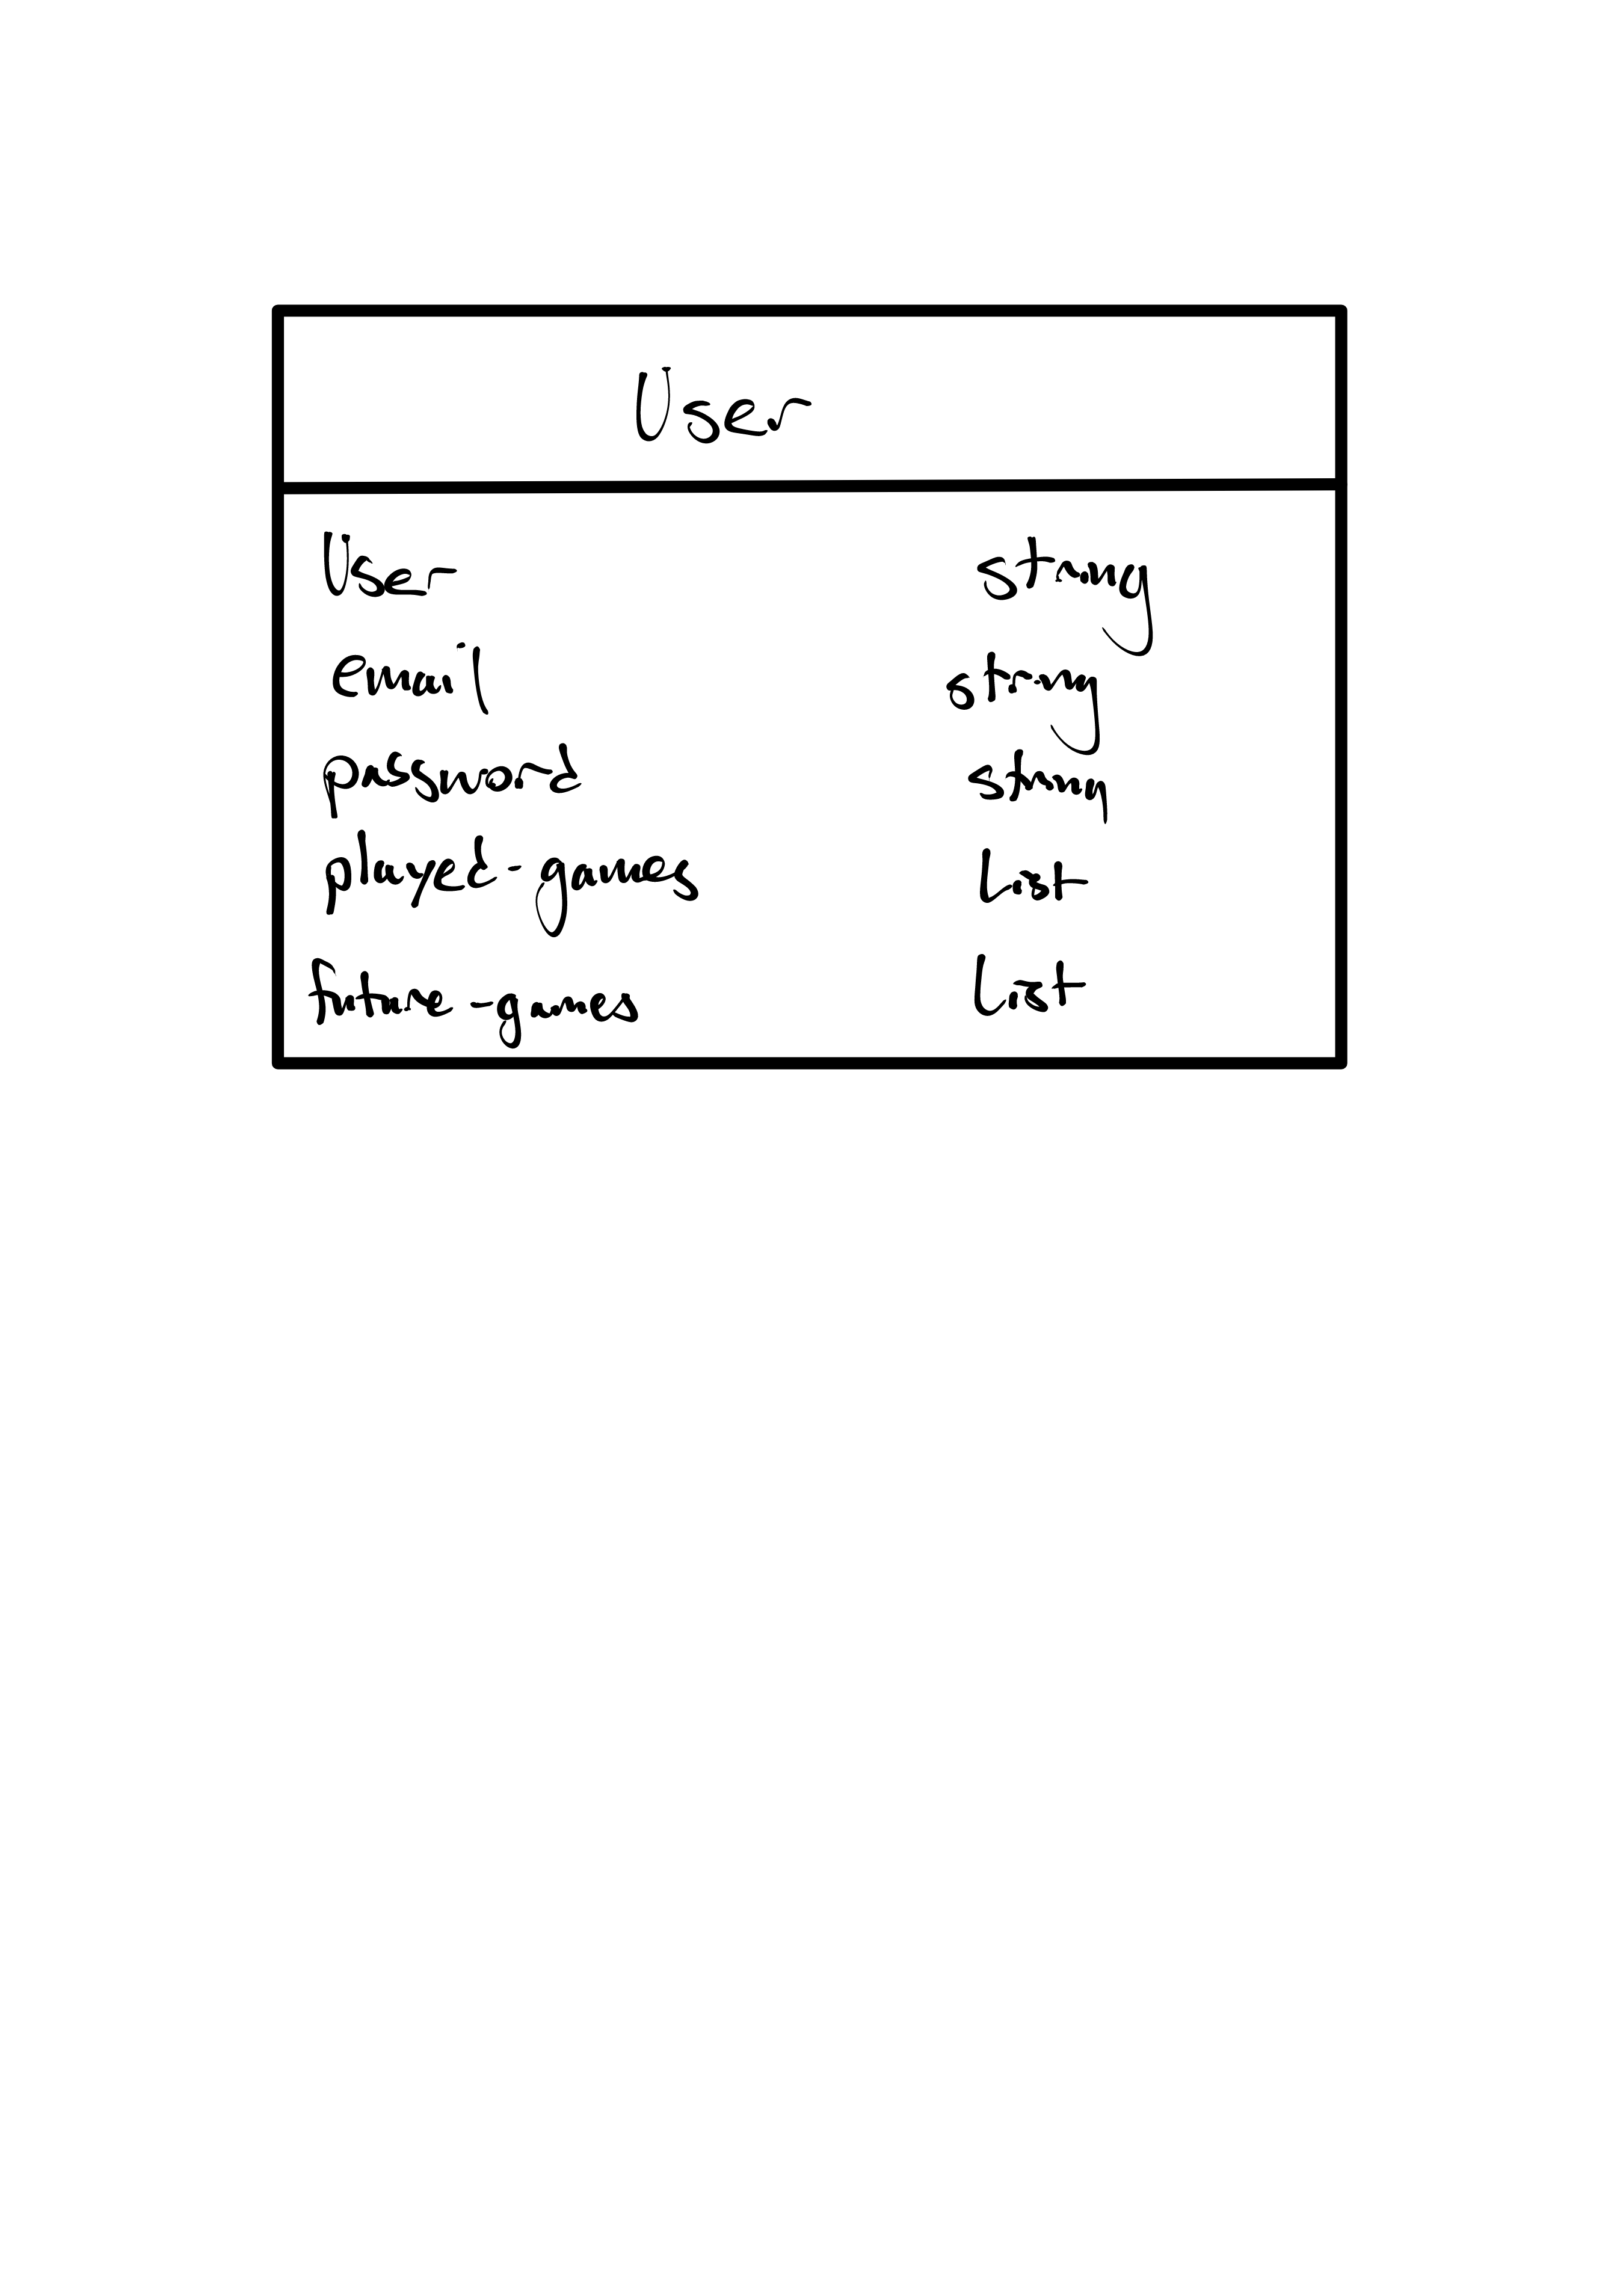 User
User string
email string
password string
played-games List
future-games List